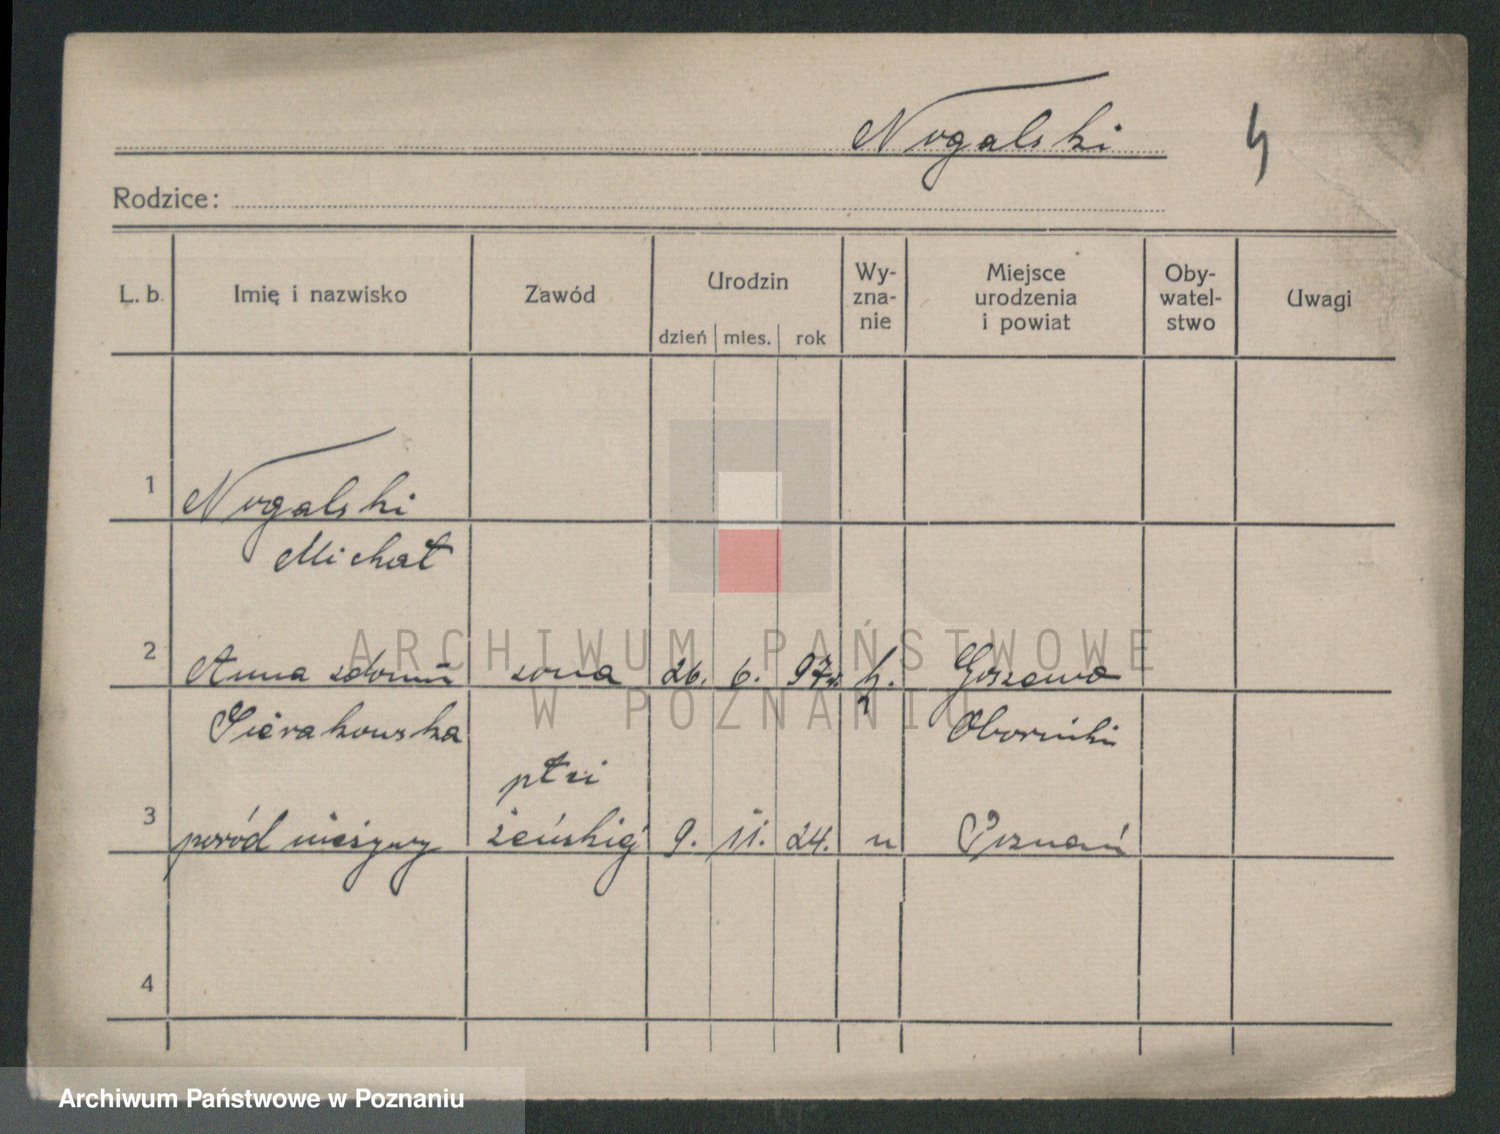 Nogalski 4
Rodzice:
L. b. Imię i nazwisko Zawód Urodzin dzień mies. rok Wy-zna-nie Miejsce urodzenia i powiat Oby-watel-stwo Uwagi
1 Nogalski
Michał
2 Anna zdomu żona 26. 6. 97r. k. Goszewo
Sierakowska Oborniki
płci
3 poród nieżywy żeńskiej 9. 11. 24. n Poznań
4
ARCHIWUM PAŃSTWOWE
W POZNANIU
Archiwum Państwowe w Poznaniu